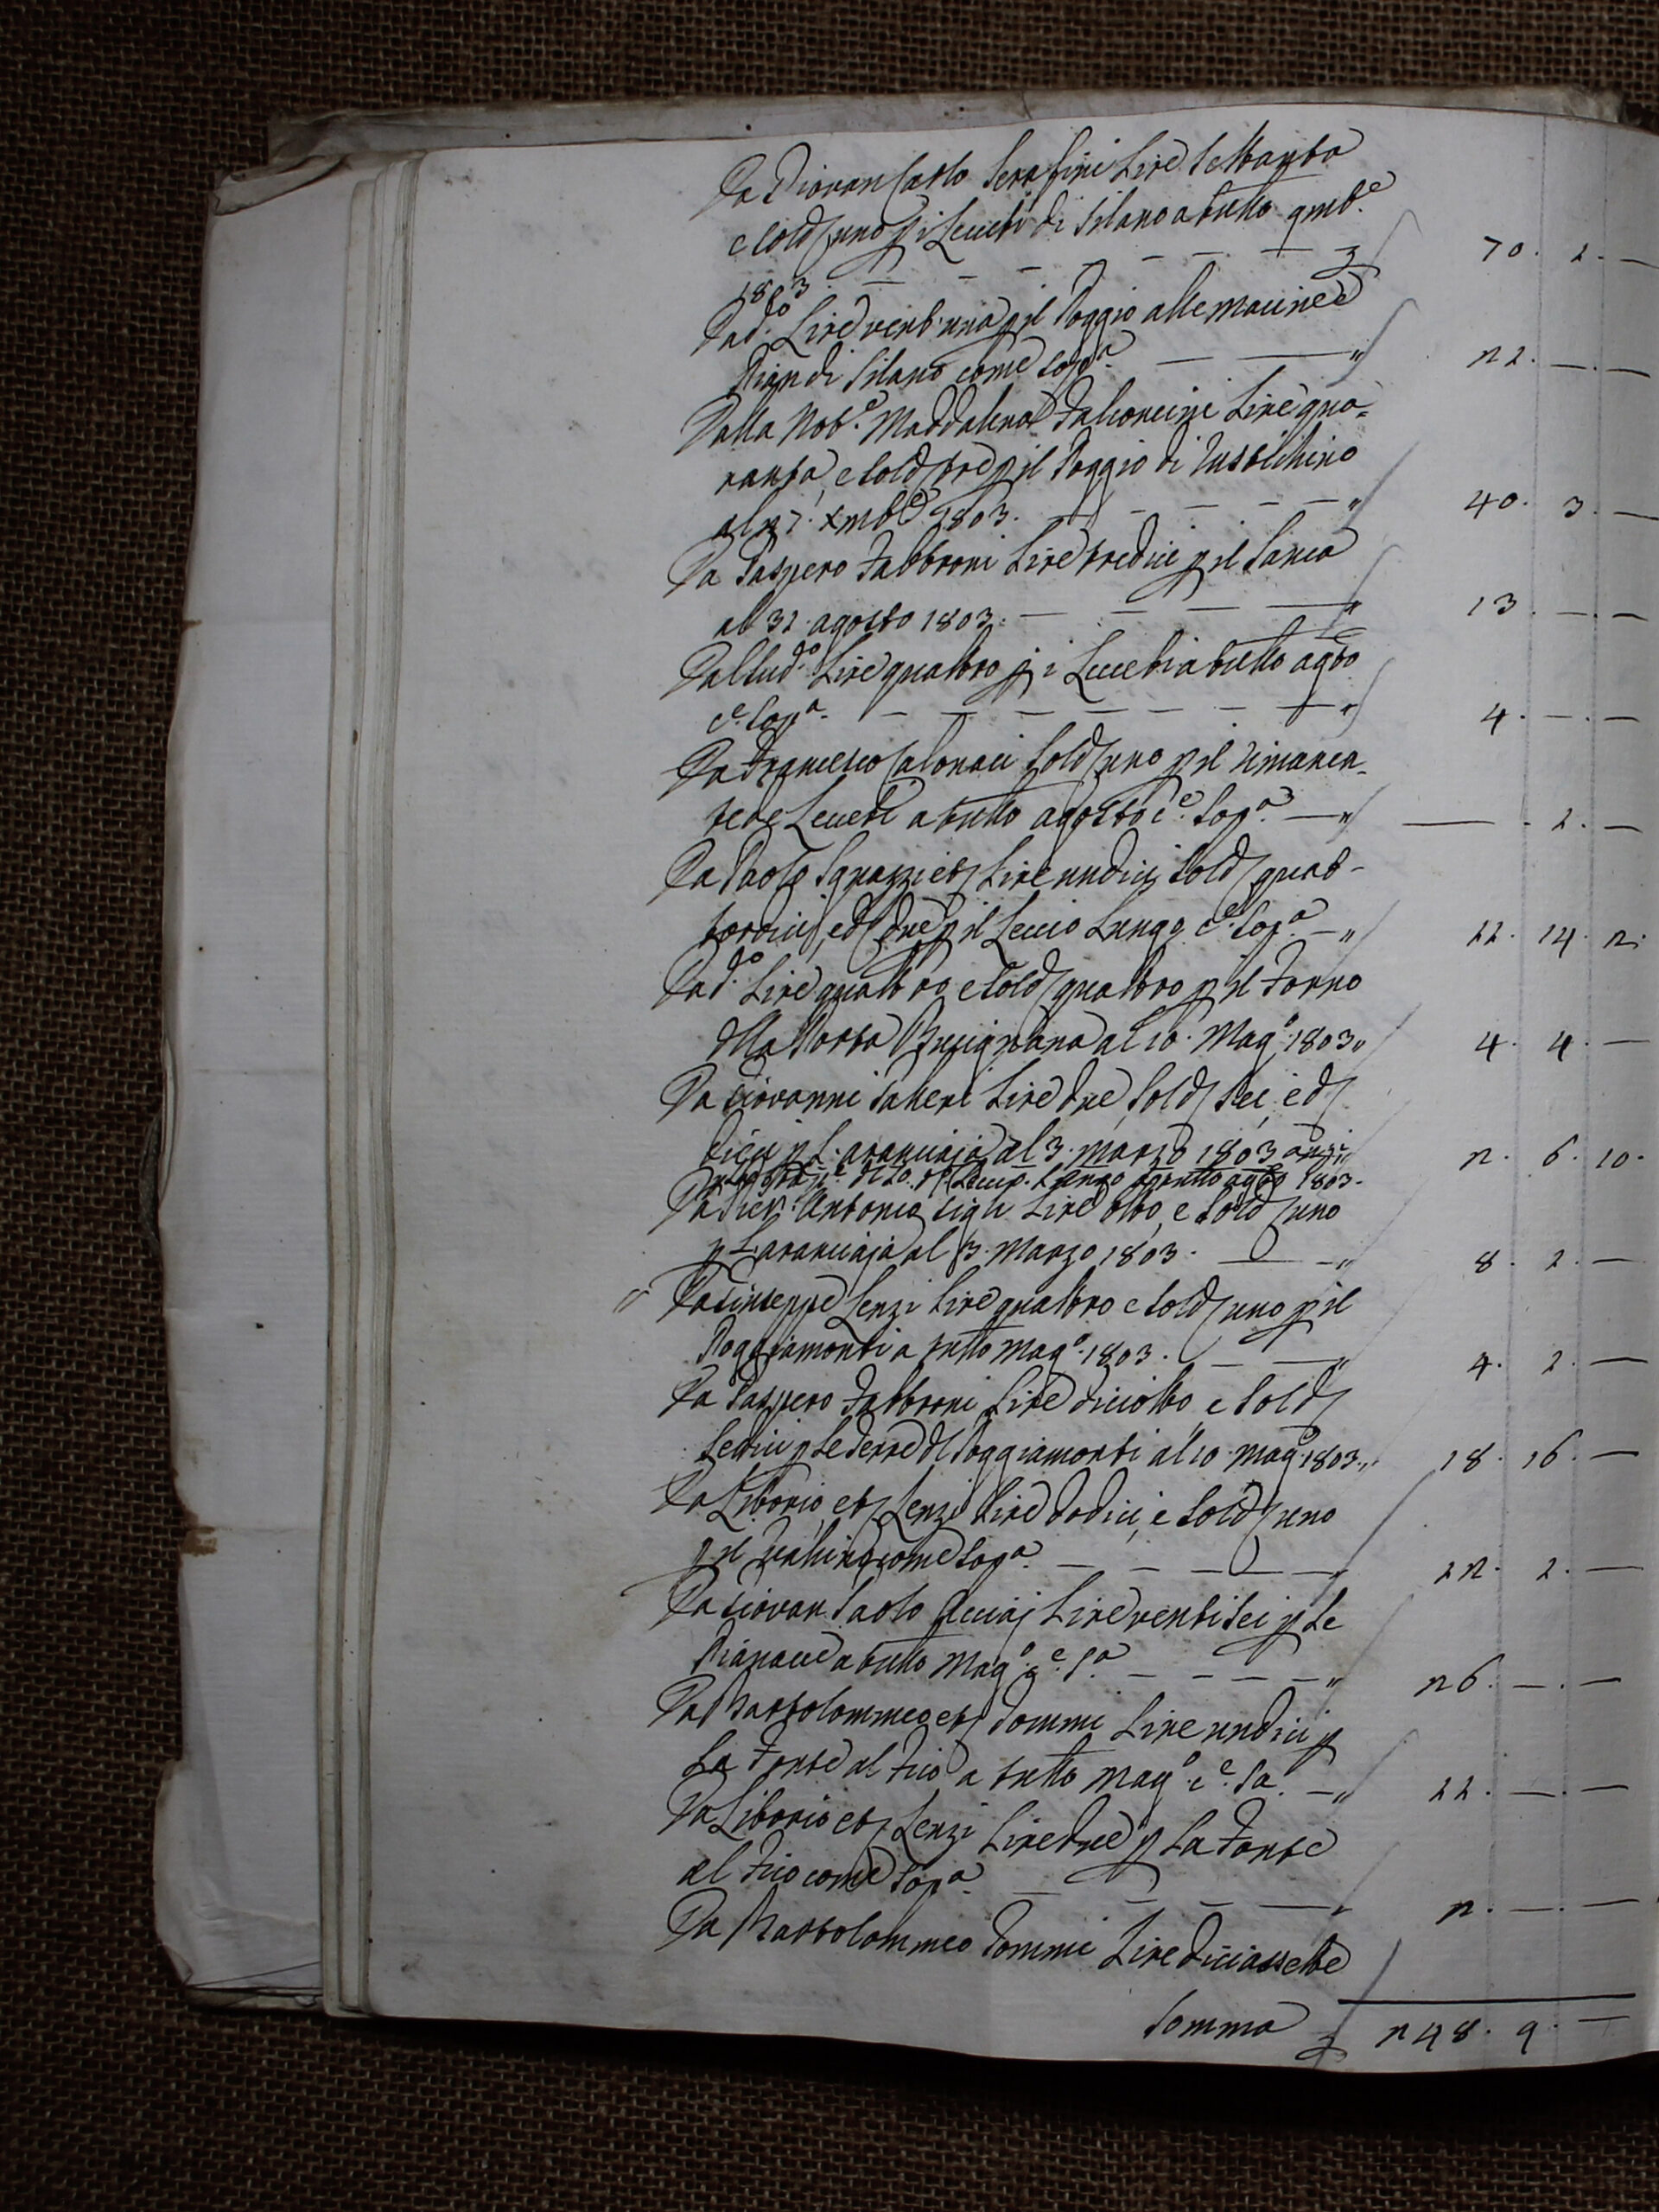 Da Giovan Carlo Serafini Lire Settanta
e sold uno p i Lecceti di Silano a tutto 9mb.e
1803. — — — — — — — 70. 1. —
Da d.o Lire vent'una p il Poggio alle macine e
Pian di Silano come sop.a — — " 21. — . —
Dalla Nob.e Maddalena Falconcini Lire qua=
ranta, e sold tre p il Poggio di
al 27. Xmb.e 1803. — — — — — " 40. 3. —
Da Gaspero Fabbroni Lire tredici p il
al 31. agosto 1803. — — — — " 13. — . —
Dal sud.o Lire quattro p i Lecceti a tutto ag.to
c.e sop.a — — — — — — — " 4. — . —
Da Francesco Calonaci sold uno p il rimanen-
te de Lecceti a tutto agosto c.e sop.a — " — . 1. —
Da Paolo Sguazzi et Lire undici sold quat-
tordici, e d due p il Leccio Lungo c.e sop.a — " 11. 14. 2.
Da d.o Lire quattro e sold quattro p il Forno
alla Porta al 10. Mag.o 1803 " 4. 4. —
Da Giovanni Lire due, sold sei, e d
dieci p L'aranciaja al 3. marzo 1803 " 2. 6. 10.
1803.
Da Pier. Antonio Lire otto, e sold uno
p L'aranciaja al 3. Marzo 1803. — — " 8. 1. —
Da Giuseppe Lenzi Lire quattro e sold uno p il
Poggiamonti a tutto Mag.o 1803. — — " 4. 1. —
Da Gaspero Fabbroni Lire diciotto e sold
sedici p Le Terre di Poggiamonti al 10. Mag.o 1803. " 18. 16. —
Da Liborio, et Lenzi Lire dodici, e sold uno
p il come sop.a — — — — " 12. 1. —
Da Giovan Paolo Lire ventisei p Le
a tutto Mag.o c.e S.a — — — — " 26. — . —
Da Bartolommeo et Tommi Lire undici p
La Fonte al Fico a tutto Mag.o c.e Sa. — " 11. — . —
Da Liborio et Lenzi Lire due p La Fonte
al Fico come sop.a — — — — 2. — . —
Da Bartolommeo Tommi Lire diciassette
Somma 248. 9. —